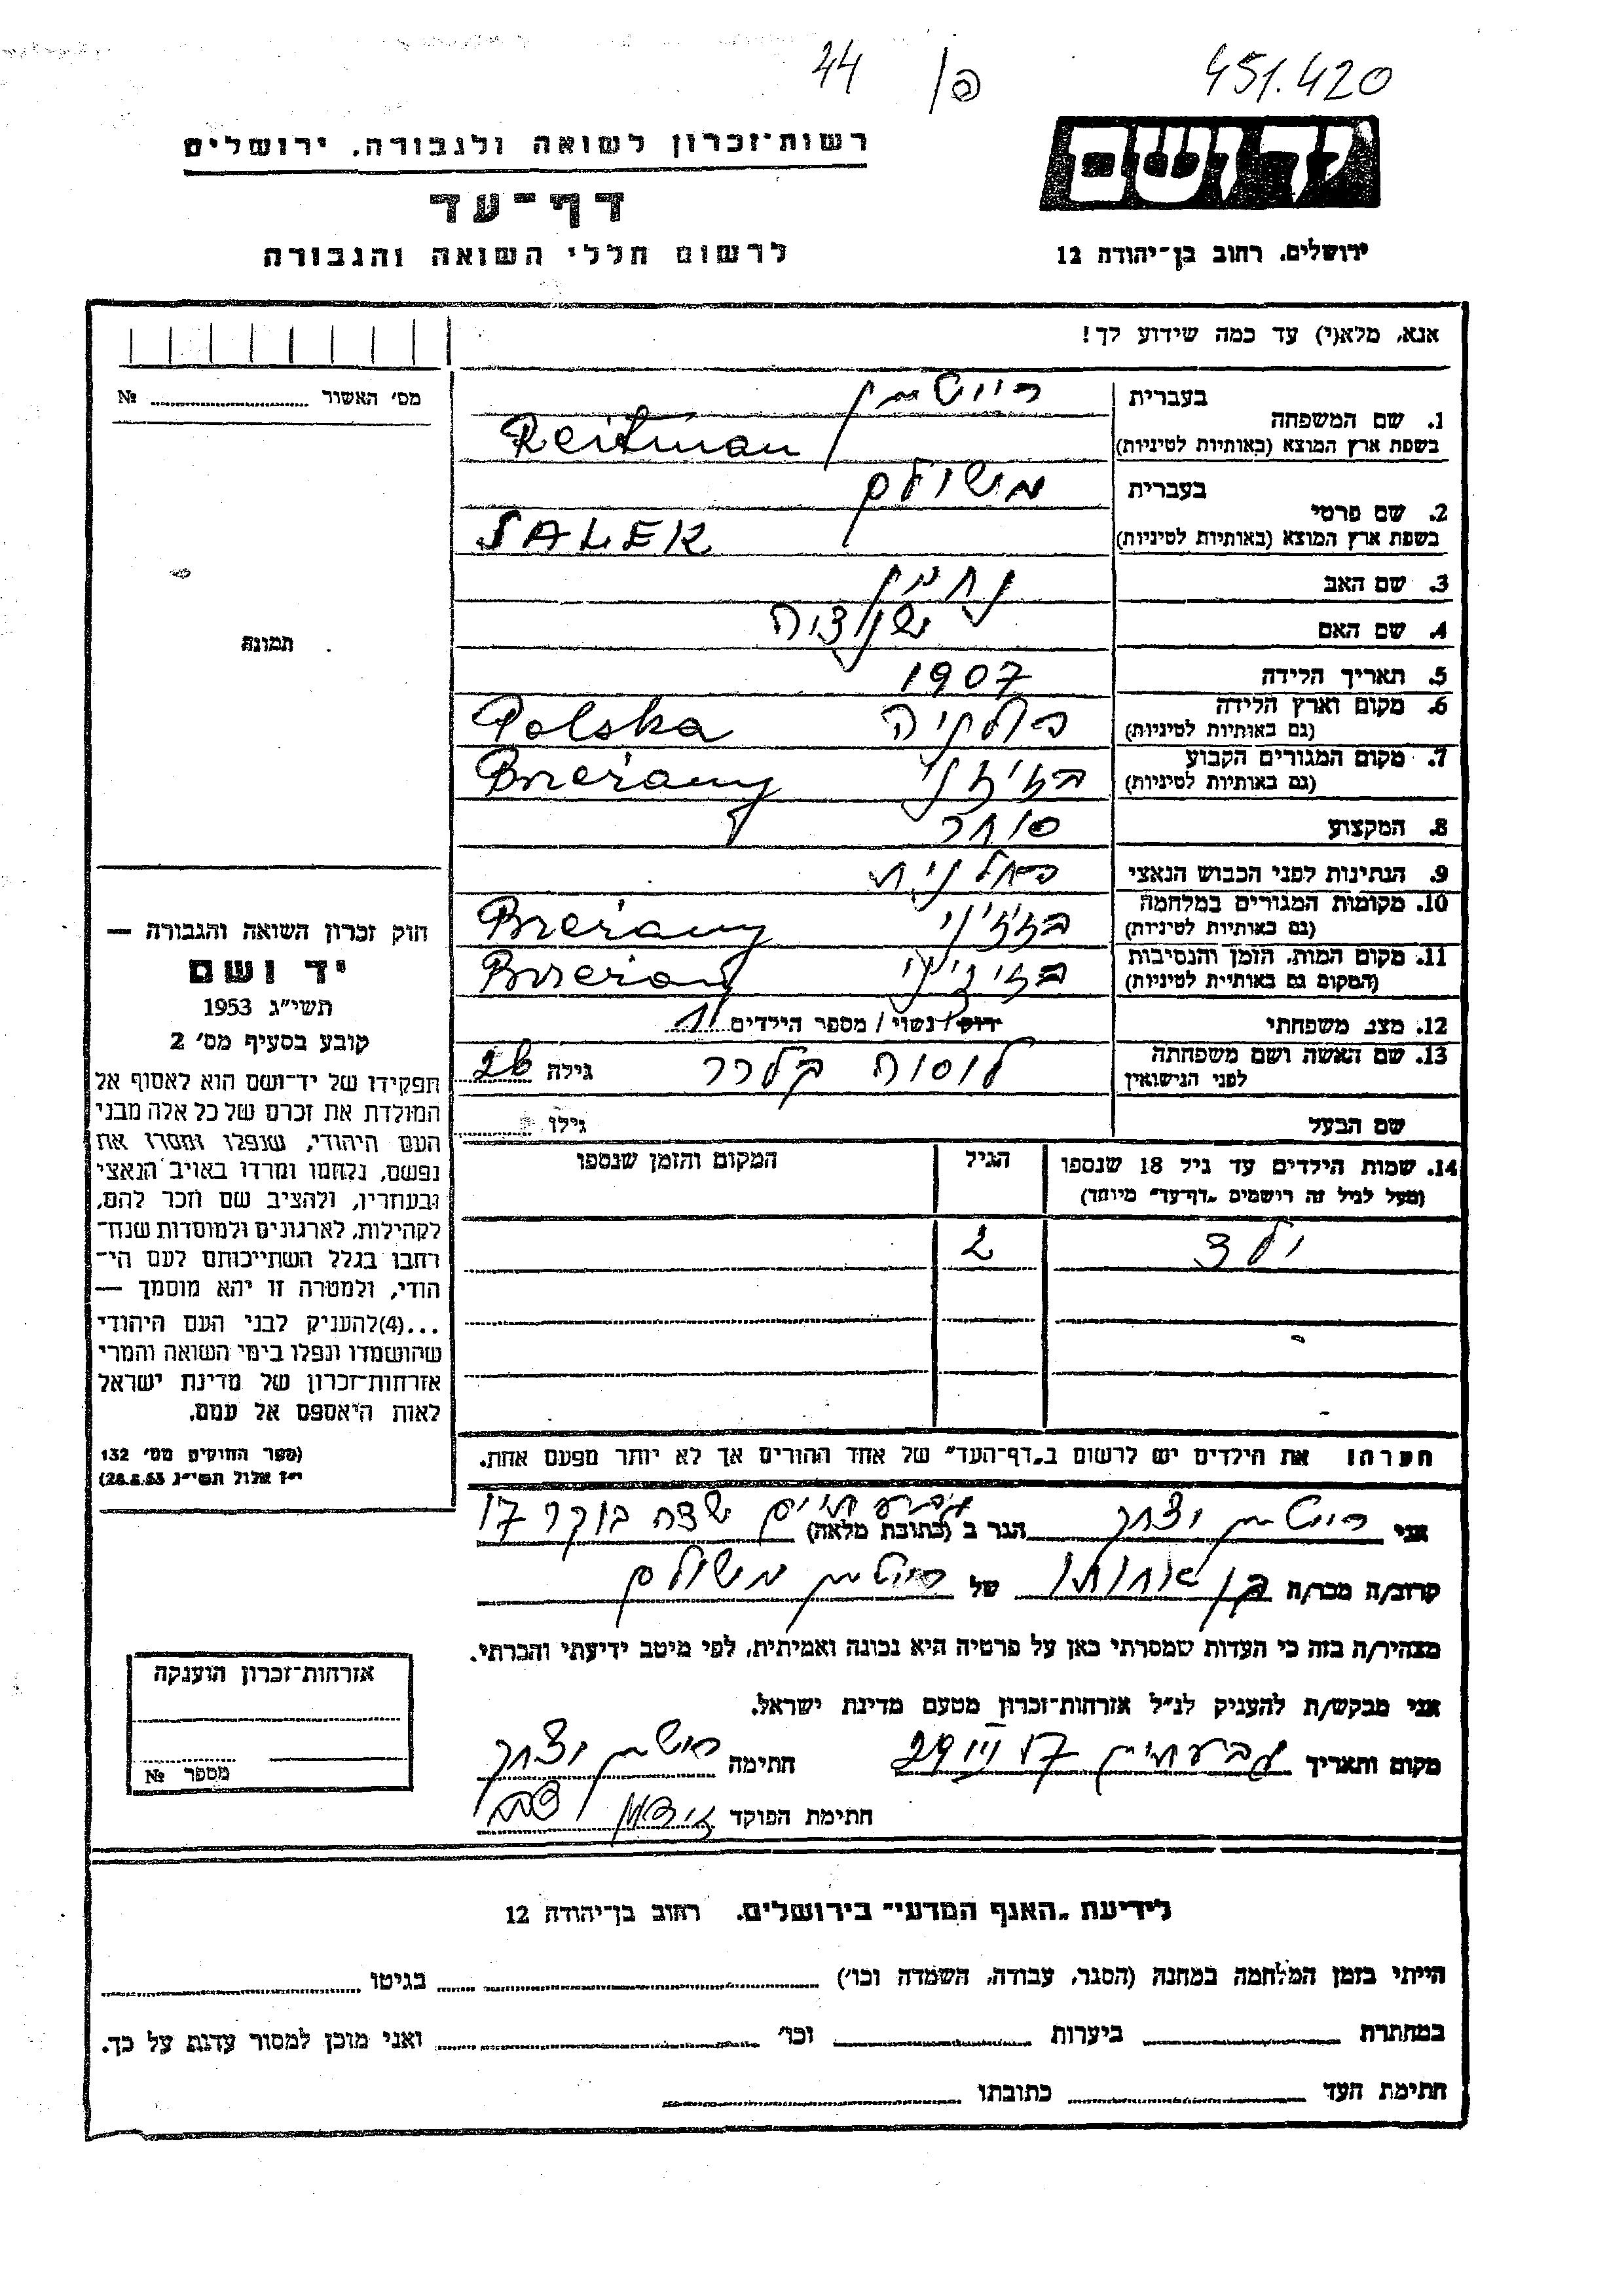 44 פ/ 451.420
רשות־זכרון לשואה ולגבורה, ירושלים
יד ושם
דף־עד
לרשום חללי השואה והגבורה
ירושלים, רחוב בן־יהודה 12
אנא, מלא(י) עד כמה שידוע לך!
מס׳ האשור № 
1. שם המשפחה
בעברית רייטמן
בשפת ארץ המוצא (באותיות לטיניות) Reitman
2. שם פרטי
בעברית משולם
בשפת ארץ המוצא (באותיות לטיניות) SALEK
3. שם האב
4. שם האם
תמונה
5. תאריך הלידה 1907
6. מקום וארץ הלידה פולניה Polska
(גם באותיות לטיניות)
7. מקום המגורים הקבוע Brzeżany
(גם באותיות לטיניות)
8. המקצוע סוחר
9. הנתינות לפני הכבוש הנאצי פולנית
10. מקומות המגורים במלחמה Brzeżany
(גם באותיות לטיניות)
11. מקום המות, הזמן והנסיבות
(המקום גם באותיות לטיניות)
12. מצב משפחתי רווק / נשוי / מספר הילדים 1
13. שם האשה ושם משפחתה גילה 26
לפני הנישואין
שם הבעל גילו
14. שמות הילדים עד גיל 18 שנספו הגיל המקום והזמן שנספו
(מעל לגיל זה רושמים „דף־עד״ מיוחד)
ילד 2
הערה: את הילדים יש לרשום ב„דף־העד״ של אחד ההורים אך לא יותר מפעם אחת.
חוק זכרון השואה והגבורה —
יד ושם
תשי״ג 1953
קובע בסעיף מס׳ 2
תפקידו של יד־ושם הוא לאסוף אל
המולדת את זכרם של כל אלה מבני
העם היהודי, שנפלו ומסרו את
נפשם, נלחמו ומרדו באויב הנאצי
ובעוזריו, ולהציב שם וזכר להם,
לקהילות, לארגונים ולמוסדות שנח־
רבו בגלל השתייכותם לעם הי־
הודי, ולמטרה זו יהא מוסמך —
...(4)להעניק לבני העם היהודי
שהושמדו ונפלו בימי השואה והמרי
אזרחות־זכרון של מדינת ישראל
לאות היאספם אל עמם.
(ספר החוקים מס׳ 132
י״ז אלול תשי״ג 28.8.53)
אני רייטמן יצחק הגר ב (כתובת מלאה) גבעתיים שדה בוקר 17
קרוב/ה מכר/ה בן אחותו של רייטמן משולם
מצהיר/ה בזה כי העדות שמסרתי כאן על פרטיה היא נכונה ואמיתית, לפי מיטב ידיעתי והכרתי.
אני מבקש/ת להעניק לנ״ל אזרחות־זכרון מטעם מדינת ישראל.
מקום ותאריך גבעתיים חתימה רייטמן יצחק
חתימת הפוקד
אזרחות־זכרון הוענקה
מספר №
לידיעת „האגף המדעי״ בירושלים, רחוב בן־יהודה 12
הייתי בזמן המלחמה במחנה (הסגר, עבודה, השמדה וכו׳) בגיטו
במחתרת ביערות וכו׳ ואני מוכן למסור עדות על כך.
חתימת העד כתובתו